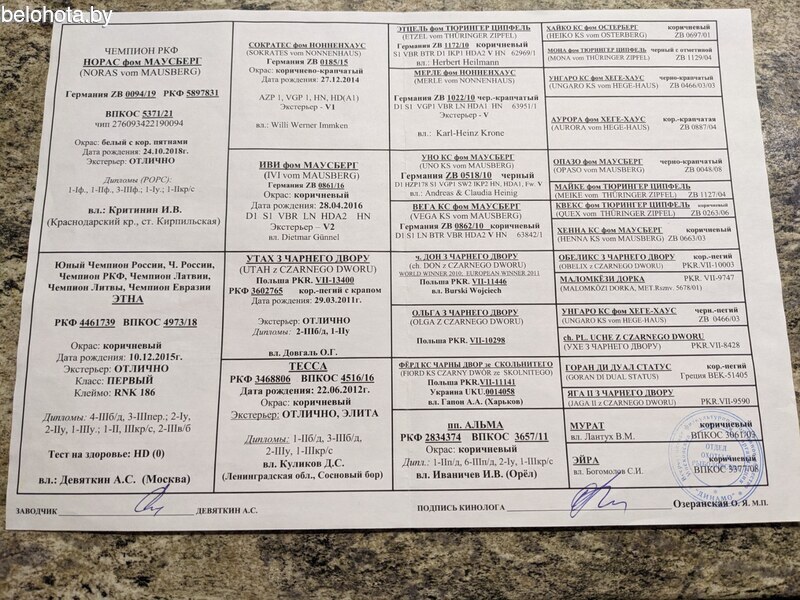 belohota.by
ЧЕМПИОН РКФ
НОРАС фом МАУСБЕРГ
(NORAS vom MAUSBERG)
Германия ZB 0094/19 РКФ 5897831
ВПКОС 5371/21
чип 276093422190094
Окрас: белый с кор. пятнами
Дата рождения: 24.10.2018г.
Экстерьер: ОТЛИЧНО
Дипломы (РОРС):
1-Iф., 1-IIф., 3-IIIф.; 1-Iу.; 1-IIкр/с
вл.: Критинин И.В.
(Краснодарский кр., ст. Кирпильская)
Юный Чемпион России, Ч. России,
Чемпион РКФ, Чемпион Латвии,
Чемпион Литвы, Чемпион Евразии
ЭТНА
РКФ 4461739 ВПКОС 4973/18
Окрас: коричневый
Дата рождения: 10.12.2015г.
Экстерьер: ОТЛИЧНО
Класс: ПЕРВЫЙ
Клеймо: RNK 186
Дипломы: 4-IIIб/д, 3-IIIпер.; 2-Iу,
2-IIу, 1-IIIу.; 1-II, IIIкр/с, 2-IIIв/б
Тест на здоровье: HD (0)
вл.: Девяткин А.С. (Москва)
СОКРАТЕС фом НОННЕНХАУС
(SOKRATES vom NONNENHAUS)
Германия ZB 0185/15
Окрас: коричнево-крапчатый
Дата рождения: 27.12.2014
AZP 1, VGP 1, HN, HD(A1)
Экстерьер - V1
вл.: Willi Werner Immken
ИВИ фом МАУСБЕРГ
(IVI vom MAUSBERG)
Германия ZB 0861/16
Окрас: коричневый
Дата рождения: 28.04.2016
D1 S1 VBR LN HDA2 HN
Экстерьер – V2
вл. Dietmar Günnel
УТАХ З ЧАРНЕГО ДВОРУ
(UTAH z CZARNEGO DWORU)
Польша PKR. VII-13400
РКФ 3602765 кор.-пегий с крапом
Дата рождения: 29.03.2011г.
Экстерьер: ОТЛИЧНО
Дипломы: 2-IIIб/д, 1-IIу
вл.: Довгаль О.Г.
ТЕССА
РКФ 3468806 ВПКОС 4516/16
Дата рождения: 22.06.2012г.
Окрас: коричневый
Экстерьер: ОТЛИЧНО, ЭЛИТА
Дипломы: 1-IIб/д, 3-IIIб/д,
2-IIIу, 1-IIIкр/с
вл.: Куликов Д.С.
(Ленинградская обл., Сосновый бор)
ЭТЦЕЛЬ фом ТЮРИНГЕР ЦИПФЕЛЬ
(ETZEL vom THÜRINGER ZIPFEL)
Германия ZB 1172/10 коричневый
S1 VBR BTR D1 IKP1 V HN 62969/1
вл.: Herbert Heilmann
МЕРЛЕ фом НОННЕНХАУС
(MERLE vom NONNENHAUS)
Германия ZB 1022/10 чер.-крапчатый
D1 S1 VGP1 VBR LN HDA1 HN 63951/1
вл.: Karl-Heinz Krone
УНО КС фом МАУСБЕРГ
(UNO KS vom MAUSBERG)
Германия ZB 0518/10 черный
D1 HZP178 S1 VGP1 SW2 IKP2 HN, HDA1, Fw. V
вл.: Andreas & Claudia Heinig
ВЕГА КС фом МАУСБЕРГ
(VEGA KS vom MAUSBERG)
Германия ZB 0862/10 коричневый
D1 S1 LN BTR VBR HDA2 V HN 63842/1
ч. ДОН З ЧАРНЕГО ДВОРУ
(ch. DON z CZARNEGO DWORU)
WORLD WINNER 2010; EUROPEAN WINNER 2011
Польша PKR. VII-11446
вл. Burski Wojciech
ОЛЬГА З ЧАРНЕГО ДВОРУ
(OLGA Z CZARNEGO DWORU)
Польша PKR. VII-10298
ФЁРД КС ЧАРНЫ ДВОР зе СКОЛЬНИТЕГО
(FIORD KS CZARNY DWÓR ze SKOLNITEGO)
Польша PKR.VII-11141
Украина UKU.0014058
вл. Гапон А.А. (Харьков)
пп. АЛЬМА
РКФ 2834374 ВПКОС 3657/11
Окрас: коричневый
Дипл.: 1-IIп/д, 6-IIIп/д, 2-Iу, 1-IIIкр/с
вл. Иваничев И.В. (Орёл)
ХАЙКО КС фом ОСТЕРБЕРГ коричневый
(HEIKO KS vom OSTERBERG) ZB 0697/01
МОНА фом ТЮРИНГЕР ЦИПФЕЛЬ черный с отметиной
(MONA vom THÜRINGER ZIPFEL) ZB 1129/04
УНГАРО КС фом ХЕГЕ-ХАУС черно-крапчатый
(UNGARO KS vom HEGE-HAUS) ZB 0466/03/03
АУРОРА фом ХЕГЕ-ХАУС кор.-крапчатая
(AURORA vom HEGE-HAUS) ZB 0887/04
ОПАЗО фом МАУСБЕРГ черно-крапчатый
(OPASO vom MAUSBERG) ZB 0048/08
МАЙКЕ фом ТЮРИНГЕР ЦИПФЕЛЬ
(MEIKE vom THÜRINGER ZIPFEL) ZB 1127/04
КВЕКС фом ТЮРИНГЕР ЦИПФЕЛЬ коричневый
(QUEX vom THÜRINGER ZIPFEL) ZB 0263/06
ХЕННА КС фом МАУСБЕРГ коричневый
(HENNA KS vom MAUSBERG) ZB 0663/03
ОБЕЛИКС З ЧАРНЕГО ДВОРУ кор.-пегий
(OBELIX z CZARNEGO DWORU) PKR.VII-10003
МАЛОМКЁЗИ ДОРКА PKR. VII-9747
(MALOMKÖZI DORKA, MET.Rsznv. 5678/01)
УНГАРО КС фом ХЕГЕ-ХАУС черн.-пегий
(UNGARO KS vom HEGE-HAUS) ZB 0466/03
ch. PL. UCHE Z CZARNEGO DWORU
(УХЕ З ЧАРНЕГО ДВОРУ) PKR.VII-8428
ГОРАН ДИ ДУАЛ СТАТУС кор.-пегий
(GORAN DI DUAL STATUS) Греция ВЕК-51405
ЯГА II З ЧАРНЕГО ДВОРУ
(JAGA II z CZARNEGO DWORU) PKR.VII-9590
МУРАТ коричневый
вл. Лантух В.М. ВПКОС 3061/03
ЭЙРА коричневый
вл. Богомолов С.И. ВПКОС 3377/08
ОТДЕЛ
"ДИНАМО"
ЗАВОДЧИК ДЕВЯТКИН А.С. ПОДПИСЬ КИНОЛОГА Озеранская О. Я. М.П.